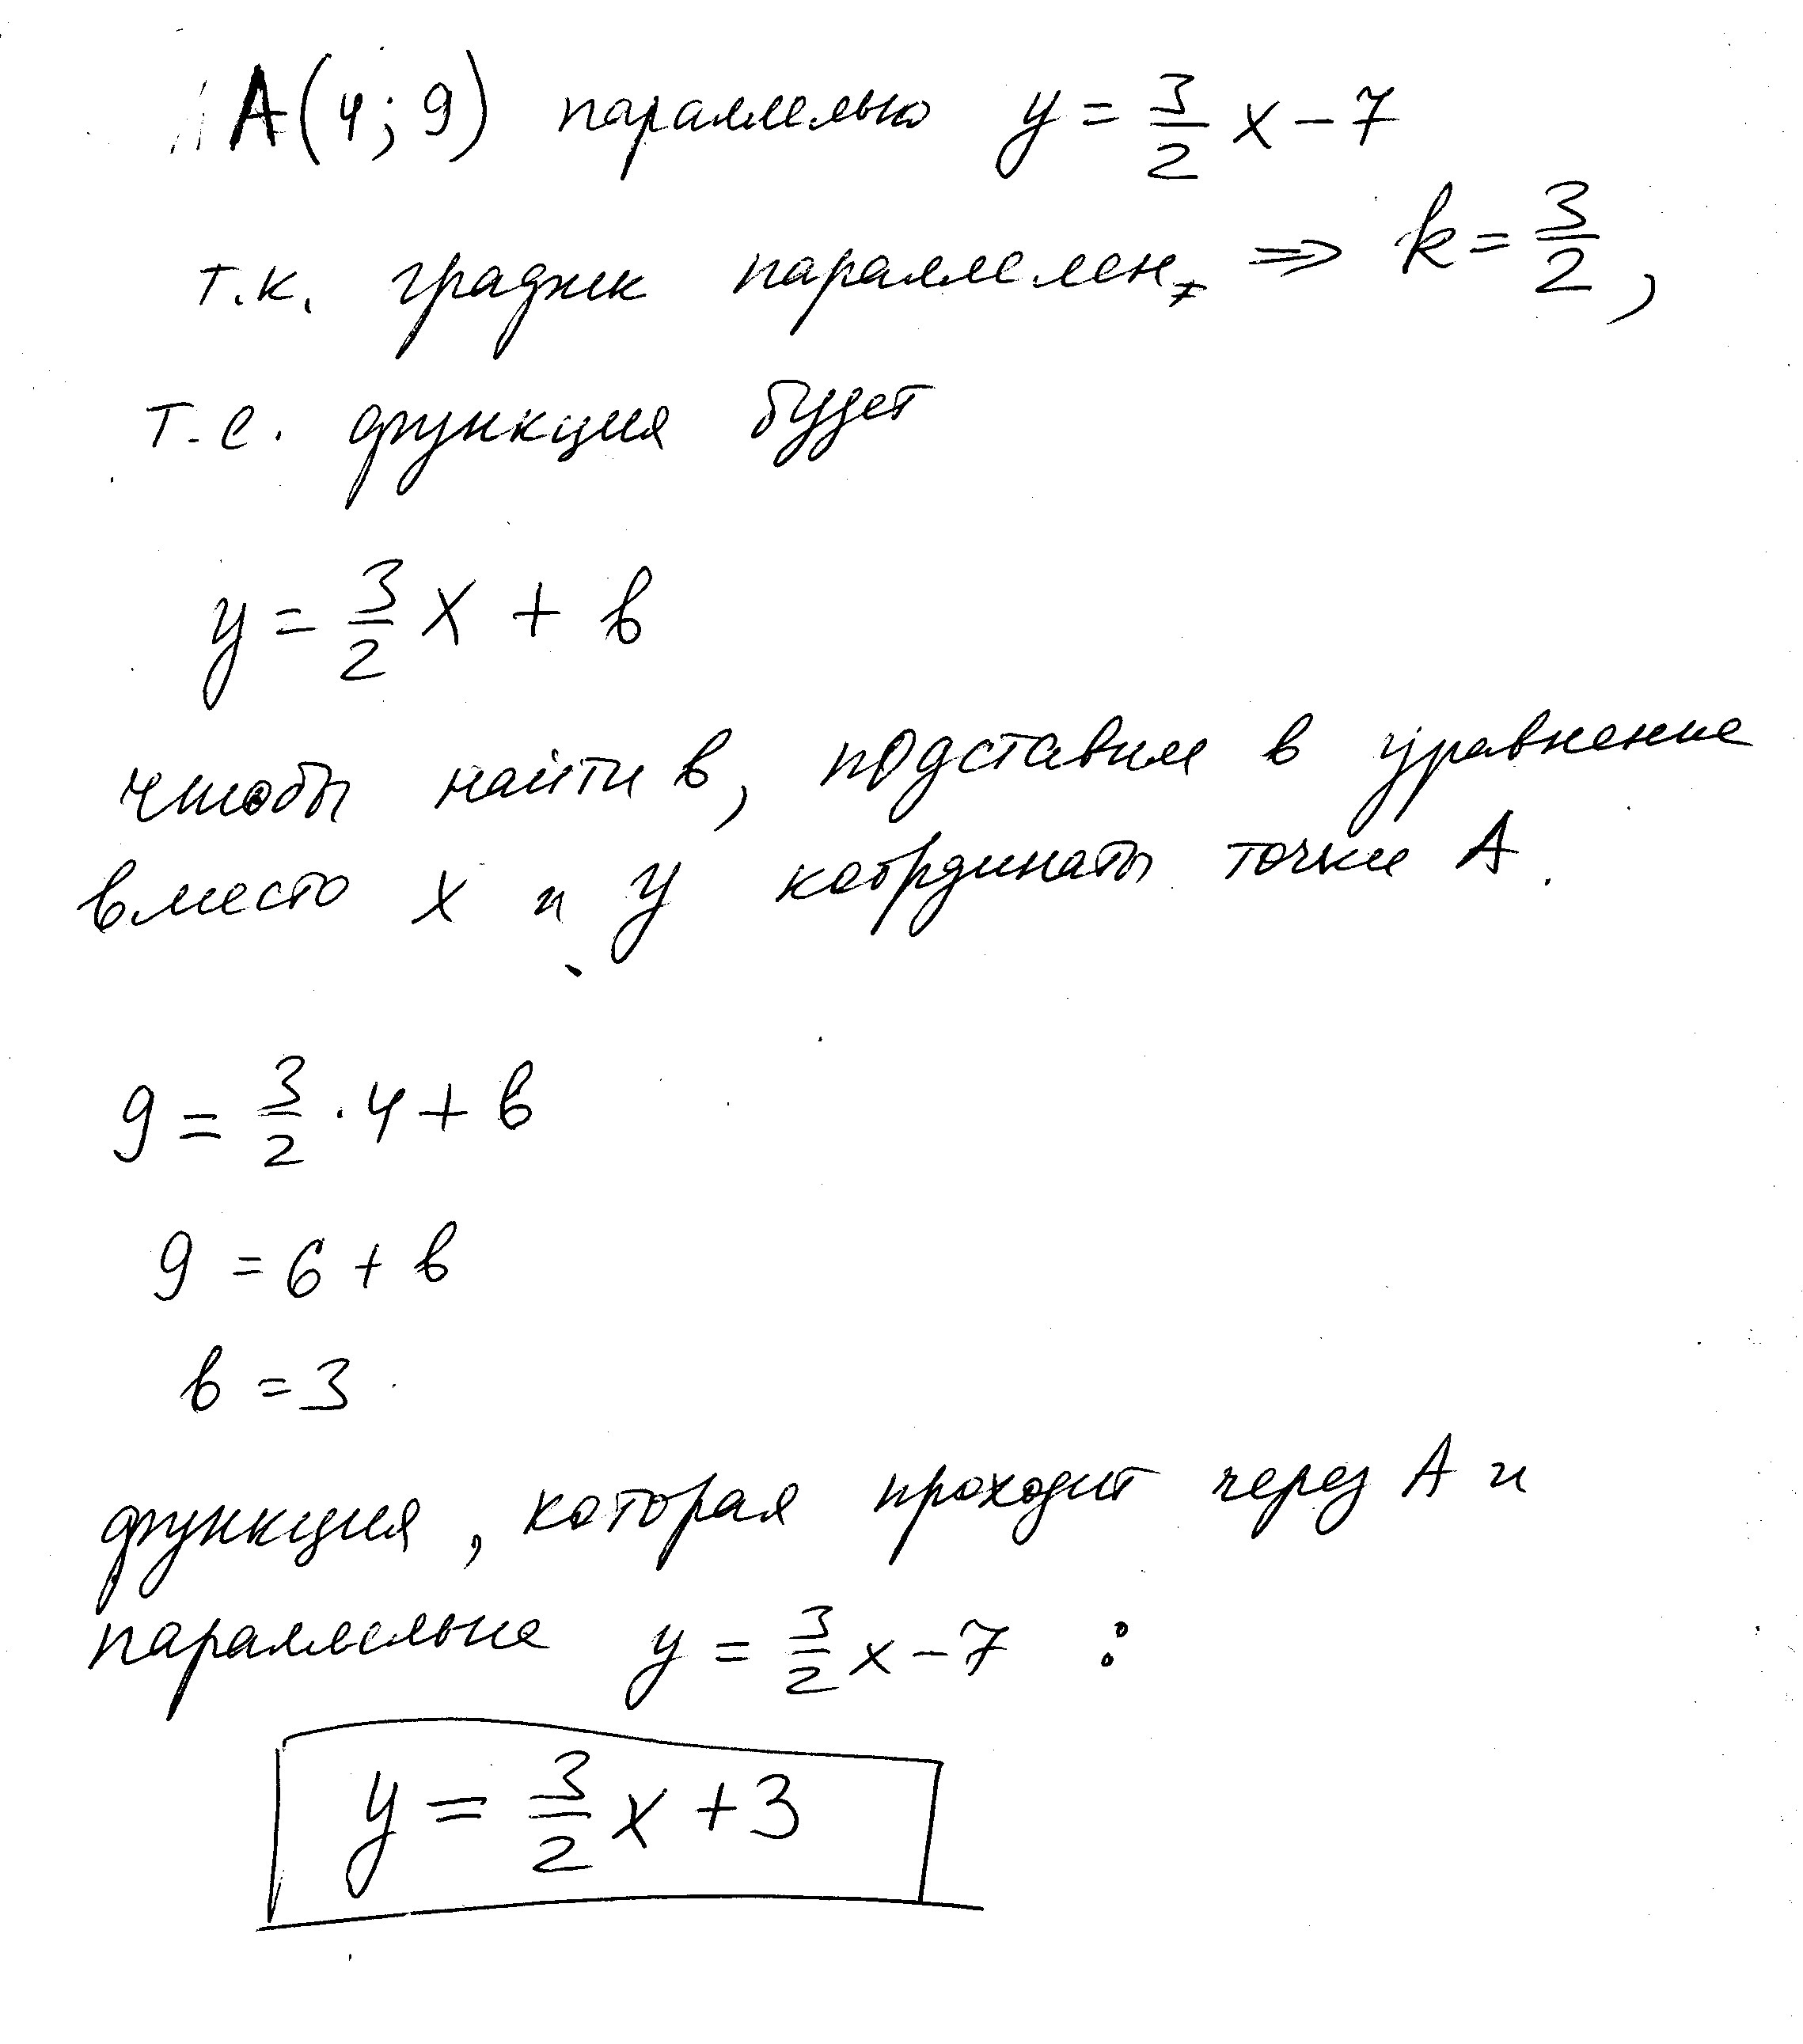 A(4; 9) параллельно y = 3/2 x - 7
т.к. график параллелен, => k = 3/2,
т.е. функция будет
y = 3/2 x + в
чтобы найти в, подставим в уравнение
вместо x и y координаты точки А.
9 = 3/2 · 4 + в
9 = 6 + в
в = 3
функция, которая проходит через А и
параллельна y = 3/2 x - 7 :
y = 3/2 x + 3